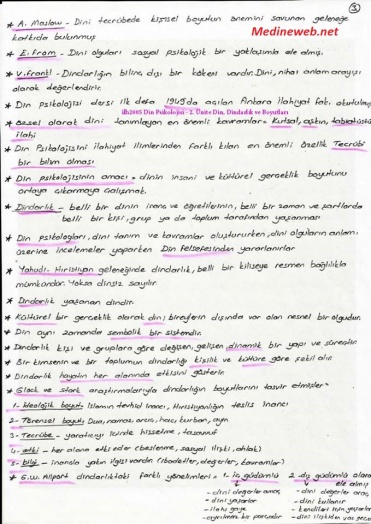 3
* A. Maslow - Dini tecrübede kişisel boyutun önemini savunan geleneğe
katkıda bulunmuş
Medineweb.net
* E. from - Dini olguları sosyal psikolojik bir yaklaşımla ele almış.
* V. frankl - Dindarlığın bilinç dışı bir kökeni vardır. Dini, nihai anlam arayışı
olarak değerlendirir.
* Din psikolojisi dersi ilk defa 1949'da açılan Ankara ilahiyat fak. okutulmuş
ilh2005 Din Psikolojisi - 2. Ünite Din, Dindarlık ve Boyutları
* Özsel olarak dini tanımlayan en önemli kavramlar = Kutsal, aşkın, tabiatüstü
ilahi
* Din Psikolojisini ilahiyat ilimlerinden farklı kılan en önemli özellik Tecrübi
bir bilim olması
* Din psikolojisinin amacı = dinin insani ve kültürel gerçeklik boyutunu
ortaya çıkarmaya çalışmak.
* Dindarlık - belli bir dinin inanç ve öğretilerinin, belli bir zaman ve şartlarda
belli bir kişi, grup ya da toplum tarafından yaşanması
* Din psikologları, dini tanım ve kavramlar oluştururken, dini olguların anlamı
üzerine incelemeler yaparken Din felsefesinden yararlanırlar
* Yahudi - Hiristiyan geleneğinde dindarlık, belli bir kiliseye resmen bağlılıkla
mümkündür. Yoksa dinsiz sayılır.
* Dindarlık yaşanan dindir.
* Kültürel bir gerçeklik olarak din; bireylerin dışında var olan nesnel bir olgudur.
* Din aynı zamanda sembolik bir sistemdir.
* Dindarlık kişi ve gruplara göre değişen, gelişen dinamik bir yapı ve süreçtir.
* Bir kimsenin ve bir toplumun dindarlığı kişilik ve kültüre göre şekil alır
* Dindarlık hayatın her alanında etkisini gösterir.
* Glock ve stark araştırmalarıyla dindarlığın boyutlarını tasvir etmişler
1- İdeolojik boyut: islamın tevhid inancı, Hıristiyanlığın teslis inancı
2- Törensel boyut: Dua, namaz, oruç, hac, kurban, ayin
3- Tecrübe - yaratıcıyı içinde hissetme, tasavvuf
4- etki - her alana etki eder (beslenme, sosyal ilişki, ahlak)
5- bilgi - inançla yakın ilgisi vardır (ibadetler, değerler, kavramlar)
* G.W. Allport dindarlıktaki farklı yönelimleri = 1. iç güdümlü 2. dış güdümlü olarak
ele almış
- dini değerler amaç - dini değerler araç
- dini yaşarlar - dini kullanır
- ilahi gaye - kendileri için yaşarlar